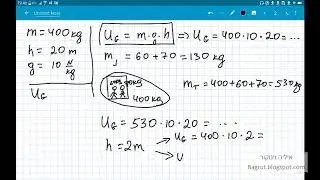 Untitled Note
m = 400 kg
h = 20 m
g = 10 N/kg
U_G
U_G = m·g·h ⇒ U_G = 400·10·20 = ...
m_1 = 60 + 70 = 130 kg
400kg
m_T = 400 + 60 + 70 = 530 kg
U_G = 530·10·20 = ...
h = 2m → U_G = 400·10·2 =
→ U
אילה ויטקור
Bagrut.blogspot.com